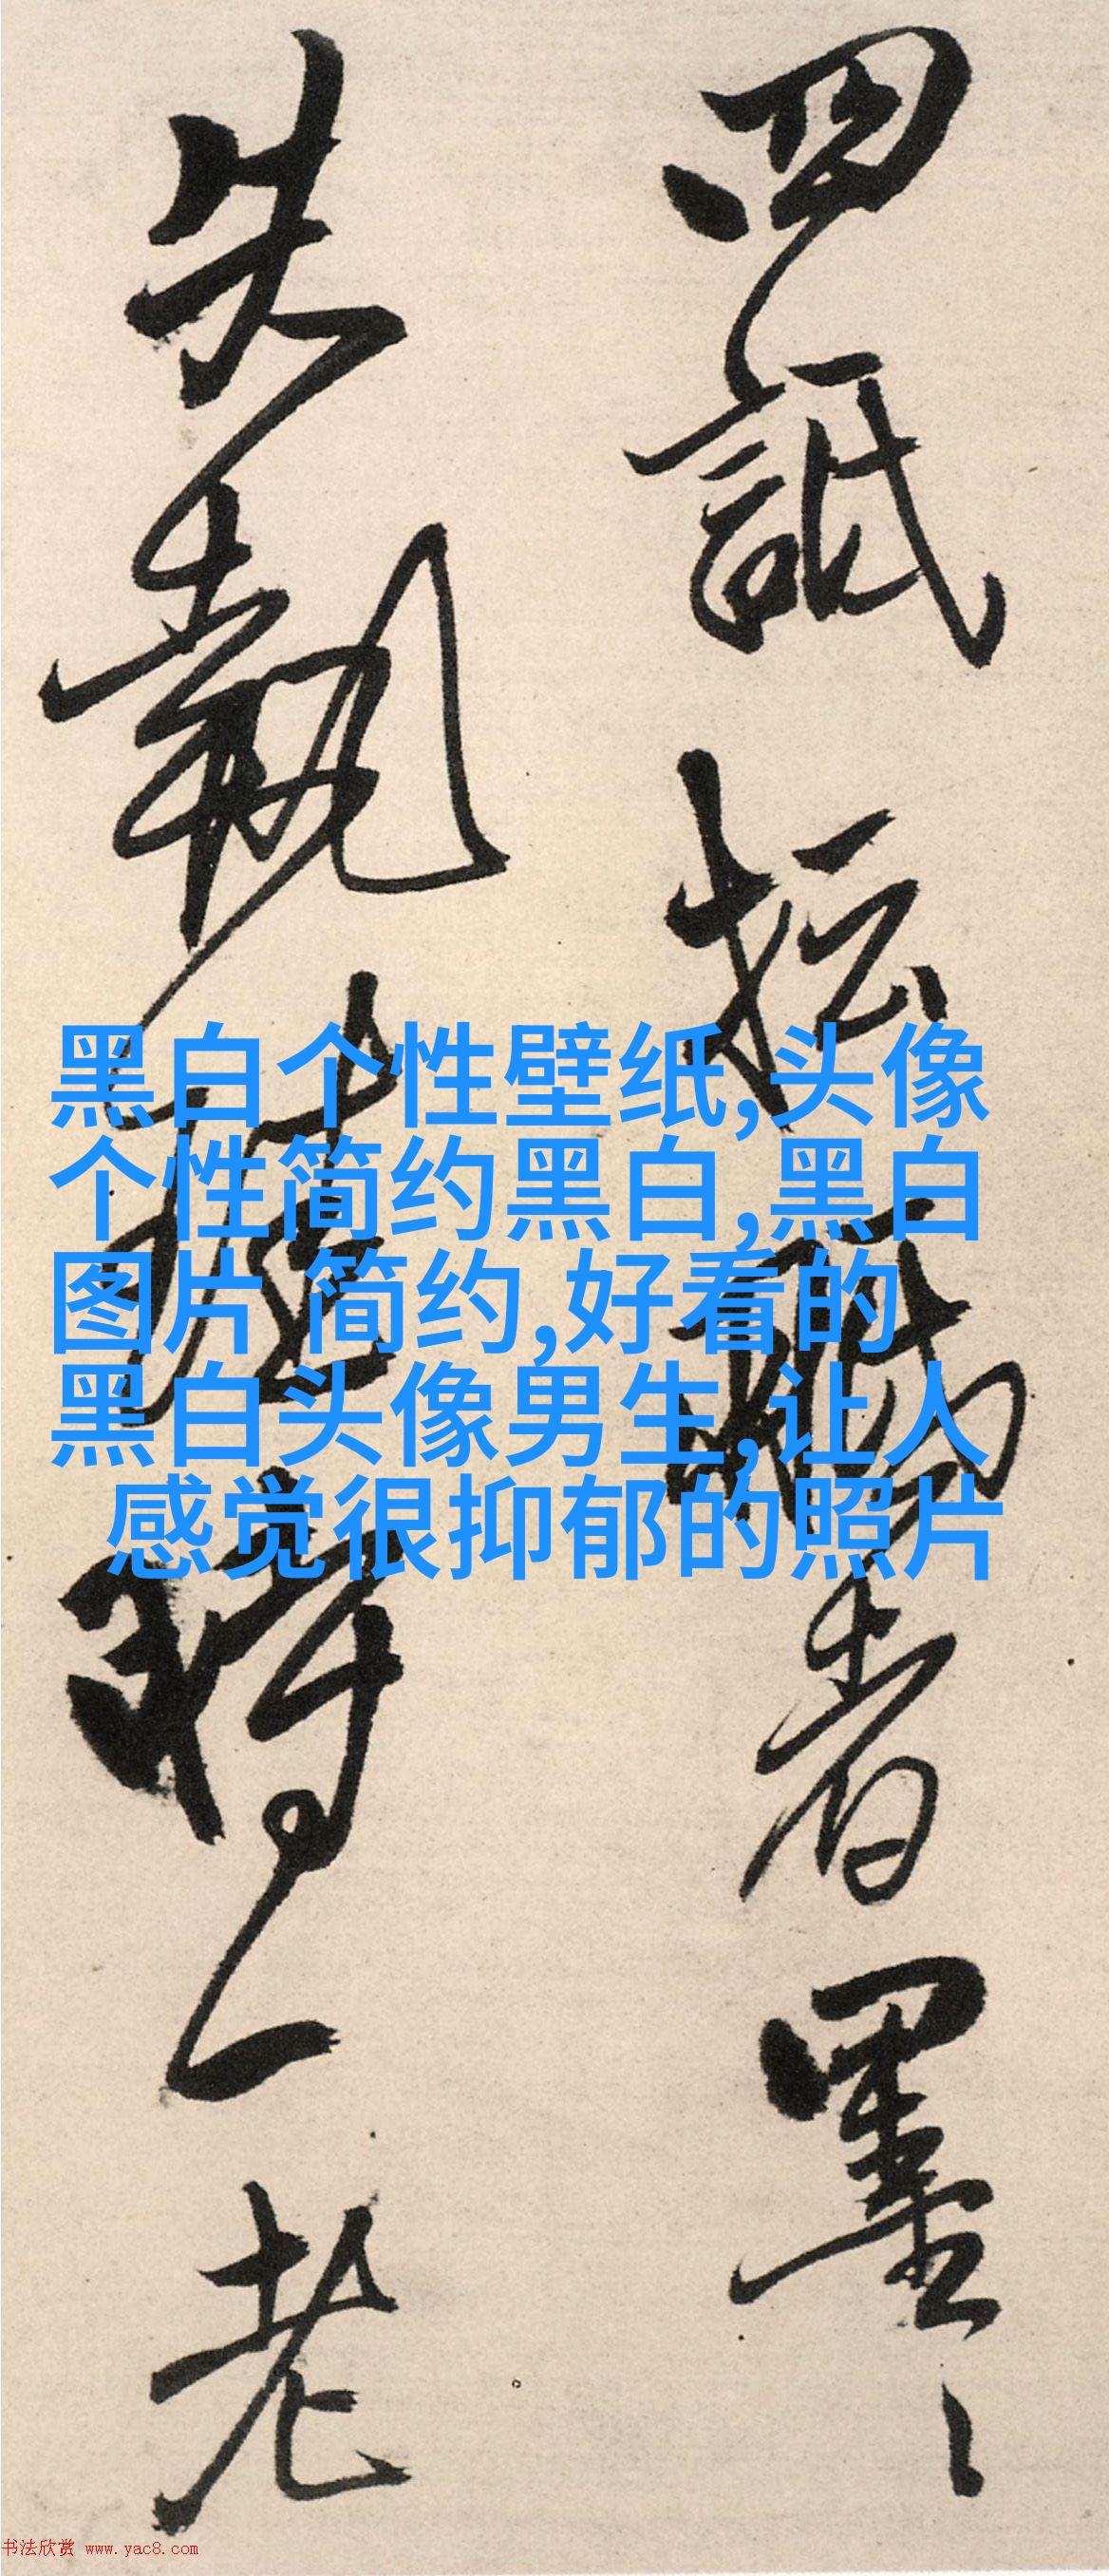 四詆者墨
失執時一老
黑白个性壁纸,头像
个性简约黑白,黑白
图片 简约,好看的
黑白头像男生,让人
感觉很抑郁的照片
书法欣赏 www.yac8.com